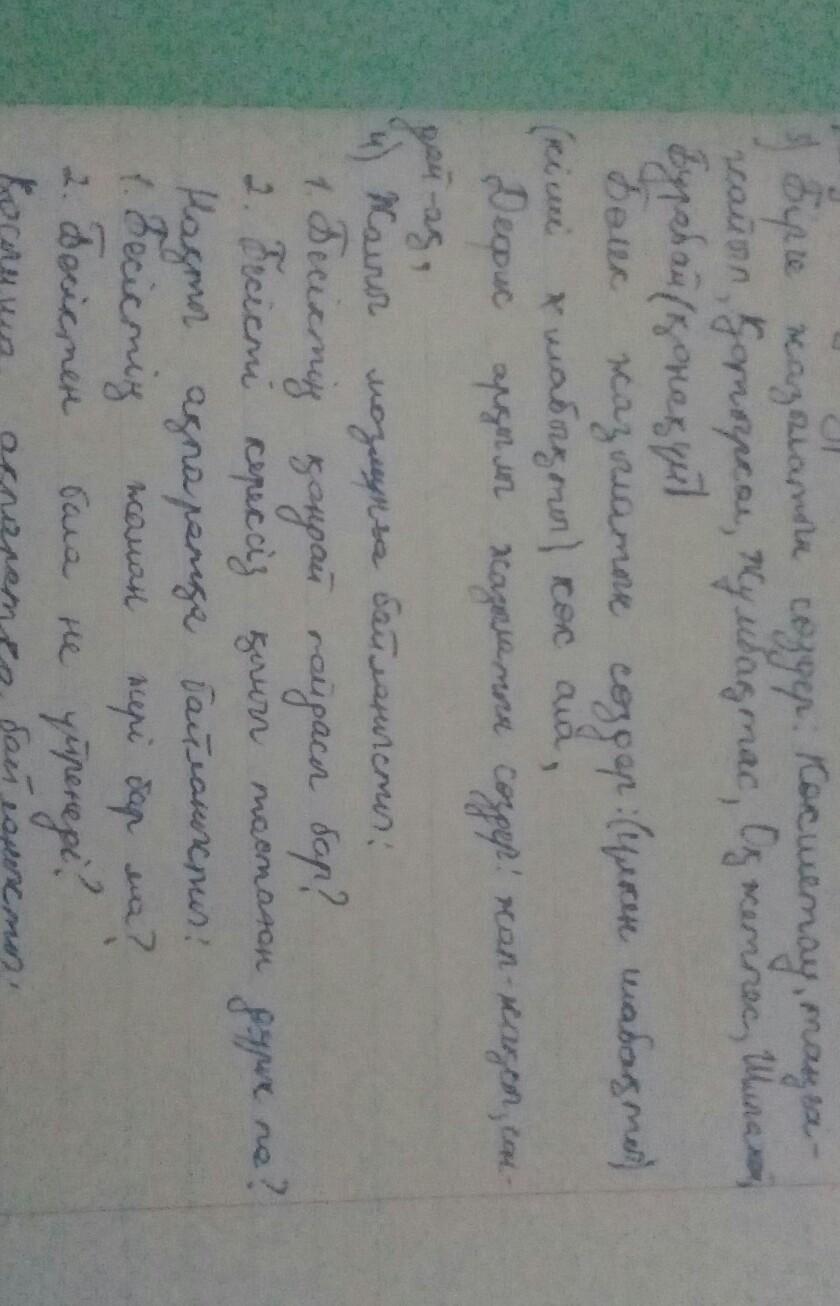 3) Бірге жазылатын сөздер: Көкшетау, таңға-
жайып, Қотыркөл, Жұмбақтас, Оқжетпес, Шылым,
Бурабай (қонақүй)
Бөлек жазылатын сөздер: (үлкен шабақты)
(кіші шабықты) көк ала,
Дефис арқылы жазылатын сөздер: жап-жақсы, сон-
дай-ақ,
4) Жалпы мазмұнға байланысты:
1. Бесіктің қандай пайдасы бар?
2. Бесікті керексіз қылып тастаған дұрыс па?
Нақты ақпаратқа байланысты:
1. Бесіктің жаман жері бар ма?
2. Бесіктен бала не үйренеді?
Қосымша ақпаратқа байланысты: